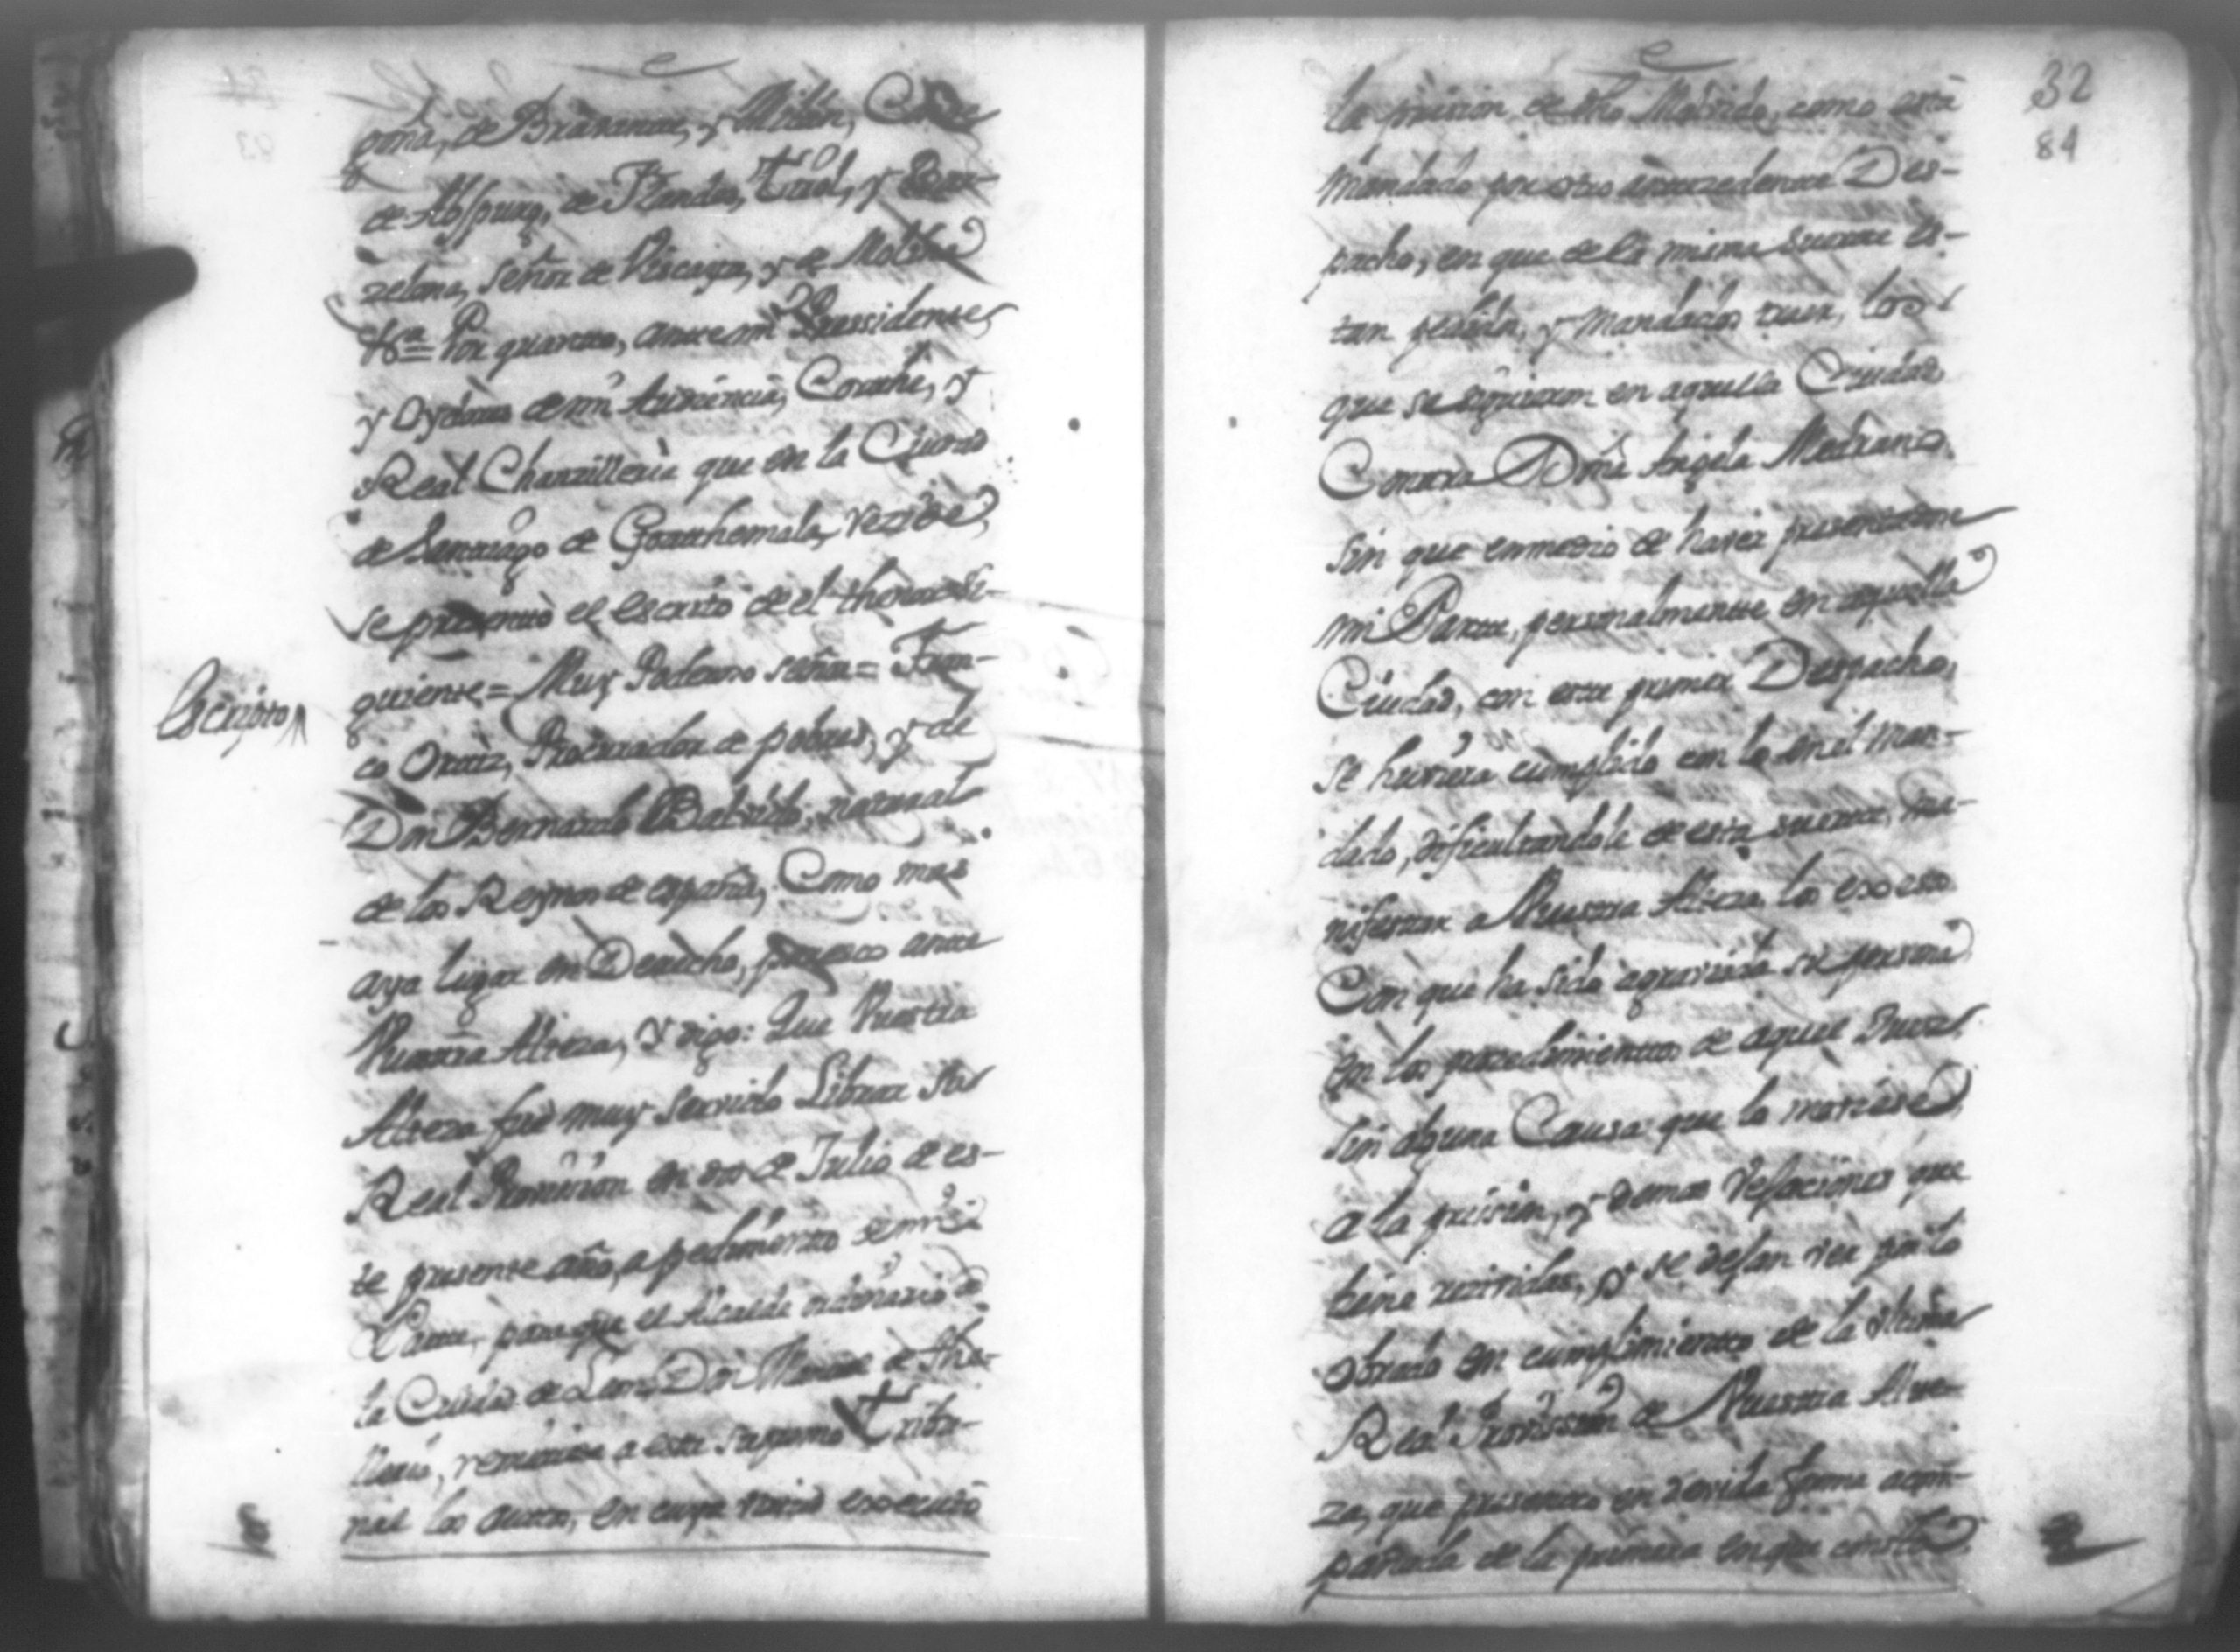 goña, de Bravante, y Milan, Conde
de Abspurg, de Flandes, tirol, y Bar-
zelona, señor de Viscaya, y de Molina
&ra= Por quanto, ante mi Pressidente
y Oydores de mi Audiencia, Corithe, y
Real Chanzilleria que en la Ciudad
de Santiago de Goathemala, rezide
se presentò el escrito de el thenor si-
Escripto
guiente= Muy Poderoso señor= Fran-
co Ortiz, Procurador de pobres, y de
Don Bernardo Babrido, natural
de los Reynos de españa, Como mas
aya lugar en Derecho, paresco ante
Vuestra Alteza, y digo: Que Vuestra
Alteza fue muy servido Librar su
Real Provision en dos de Julio de es-
te presente año, a pedimento de mi
Parte, para que el Alcalde ordinario de
la Ciudad de Leon, Don Manuel de
remitiese a este supremo tribu-
nal los autos, en cuya executò
32
84
la prision de dho como està
mandado por otro antezedente Des-
pacho, en que de la misma suerte es-
tan pedidos, y mandados traer, los
que se siguieron en aquella Ciudad
Contra Doña Angela Medrano,
sin que enmedio de haver presentadose
mi Parte, personalmente en aquella
Ciudad, con este primer Despacho,
se huviera cumplido con lo en el man-
dado, dificultandole de esta suerte, ma-
nifestar a Vuestra Alteza los exsesos
Con que ha sido agraviada su persona
en los procedimientos de aquel Juez
sin alguna Causa que lo motivase,
a la prision, y demas vejaciones que
tiene rezividas, y se dejan ver por lo
obrado en cumplimiento de la ultima
Real Provission de Vuestra Alte-
za, que presento en devida forma acom-
pañada de la primera en que consta